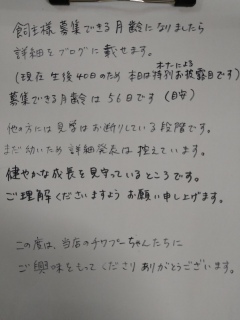 飼主様募集できる月齢になりましたら
詳細をブログに載せます。
オーナーによる
(現在 生後40日のため 本日は特別お披露目です)
募集できる月齢は 56日です (目安)
他の方には見学はお断りしている段階です。
まだ幼いため詳細発表は控えています。
健やかな成長を見守っているところです。
ご理解くださいますよう お願い申し上げます。
この度は、当店のチワプーちゃんたちに
ご興味をもってくださり ありがとうございます。